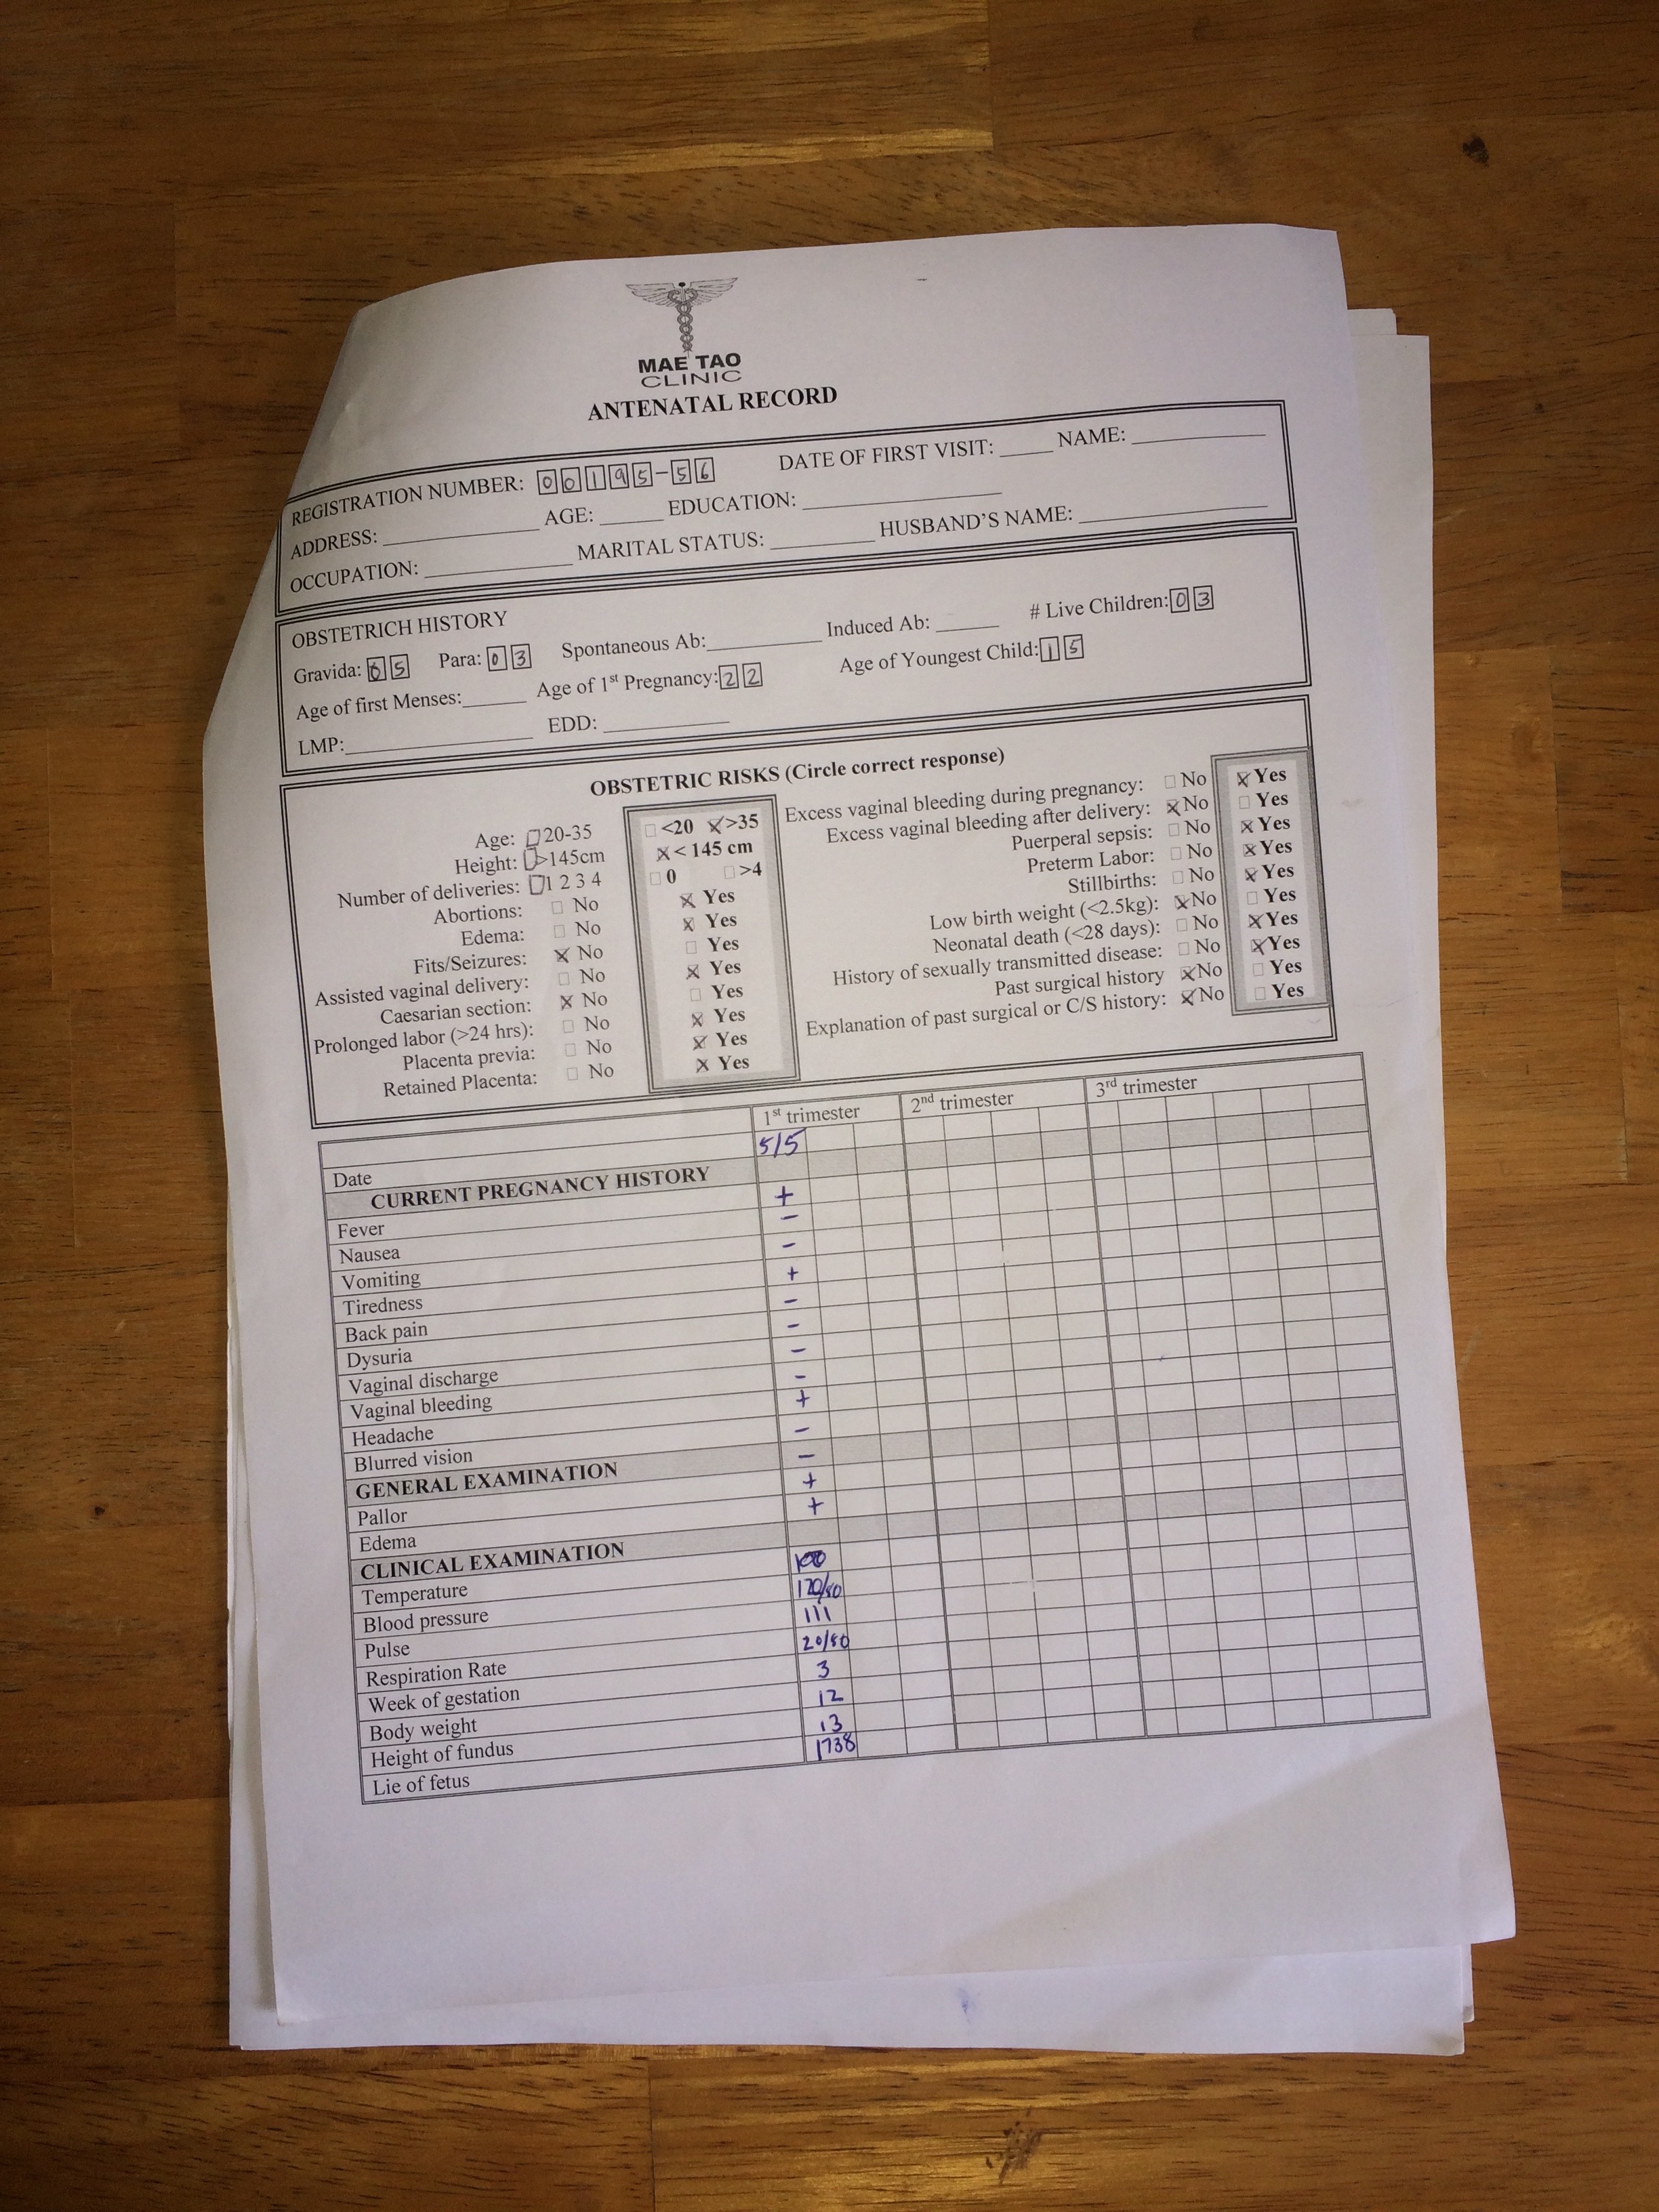 MAE TAO
CLINIC
ANTENATAL RECORD
REGISTRATION NUMBER: 00195-56 DATE OF FIRST VISIT: NAME:
ADDRESS: AGE: EDUCATION:
OCCUPATION: MARITAL STATUS: HUSBAND'S NAME:
OBSTETRICH HISTORY
Gravida: 05 Para: 03 Spontaneous Ab: Induced Ab: # Live Children: 03
Age of first Menses: Age of 1st Pregnancy: 22 Age of Youngest Child: 15
LMP: EDD:
OBSTETRIC RISKS (Circle correct response)
Age: 20-35 <20 X >35
Height: >145cm X < 145 cm
Number of deliveries: 1 2 3 4 0 >4
Abortions: No X Yes
Edema: No X Yes
Fits/Seizures: X No Yes
Assisted vaginal delivery: No X Yes
Caesarian section: X No Yes
Prolonged labor (>24 hrs): No X Yes
Placenta previa: No X Yes
Retained Placenta: No X Yes
Excess vaginal bleeding during pregnancy: No X Yes
Excess vaginal bleeding after delivery: X No Yes
Puerperal sepsis: No X Yes
Preterm Labor: No X Yes
Stillbirths: No X Yes
Low birth weight (<2.5kg): X No Yes
Neonatal death (<28 days): No X Yes
History of sexually transmitted disease: No X Yes
Past surgical history X No Yes
Explanation of past surgical or C/S history: X No Yes
1st trimester 2nd trimester 3rd trimester
Date 5/5
CURRENT PREGNANCY HISTORY
Fever +
Nausea -
Vomiting -
Tiredness +
Back pain -
Dysuria -
Vaginal discharge -
Vaginal bleeding -
Headache +
Blurred vision -
GENERAL EXAMINATION -
Pallor +
Edema +
CLINICAL EXAMINATION
Temperature 100
Blood pressure 120/80
Pulse 111
Respiration Rate 20/80
Week of gestation 3
Body weight 12
Height of fundus 13
Lie of fetus 1738